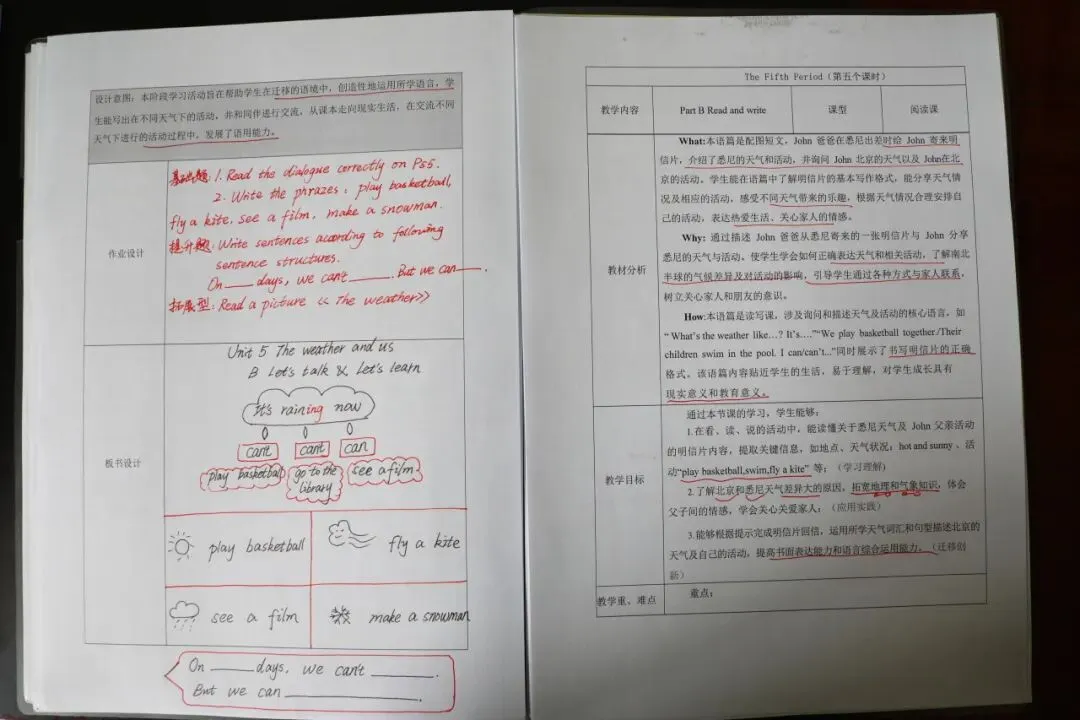 设计意图：本阶段学习活动旨在帮助学生在迁移的语境中，创造性地运用所学语言，学
生能写出在不同天气下的活动，并和同伴进行交流，从课本走向现实生活，在交流不同
天气下进行的活动过程中，发展了语用能力。
作业设计
基础题：1. Read the dialogue correctly on P55.
2. Write the phrazes : play basketball,
fly a kite, see a film, make a snowman.
提升题：Write sentences according to following
sentence structures.
On ____ days, we can't ______. But we can____.
拓展型：Read a picture 《The weather》
板书设计
Unit 5 The weather and us
B Let's talk & Let's learn
It's raining now
can't can't can
play basketball go to the library see a film
play basketball fly a kite
see a film make a snowman
On _____ days, we can't ________.
But we can ________________.
The Fifth Period（第五个课时）
教学内容 Part B Read and write 课型 阅读课
教材分析
What:本语篇是配图短文，John 爸爸在悉尼出差时给 John 寄来明
信片，介绍了悉尼的天气和活动，并询问 John 北京的天气以及 John在北
京的活动。学生能在语篇中了解明信片的基本写作格式，能分享天气情
况及相应的活动，感受不同天气带来的乐趣，根据天气情况合理安排自
己的活动，表达热爱生活、关心家人的情感。
Why: 通过描述 John 爸爸从悉尼寄来的一张明信片与 John 分享
悉尼的天气与活动。使学生学会如何正确表达天气和相关活动，了解南北
半球的气候差异及对活动的影响，引导学生通过各种方式与家人联系，
树立关心家人和朋友的意识。
How:本语篇是读写课，涉及询问和描述天气及活动的核心语言，如
“ What's the weather like…? It's….”“We play basketball together./Their
children swim in the pool. I can/can't...”同时展示了书写明信片的正确
格式。该语篇内容贴近学生的生活，易于理解，对学生成长具有
现实意义和教育意义。
教学目标
通过本节课的学习，学生能够：
1.在看、读、说的活动中，能读懂关于悉尼天气及 John 父亲活动
的明信片内容，提取关键信息，如地点、天气状况：hot and sunny 、活
动“play basketball,swim,fly a kite” 等；（学习理解）
2.了解北京和悉尼天气差异大的原因，拓宽地理和气象知识，体会
父子间的情感，学会关心关爱家人；（应用实践）
3.能够根据提示完成明信片回信，运用所学天气词汇和句型描述北京的
天气及自己的活动，提高书面表达能力和语言综合运用能力。（迁移创
新）
教学重、难点 重点：